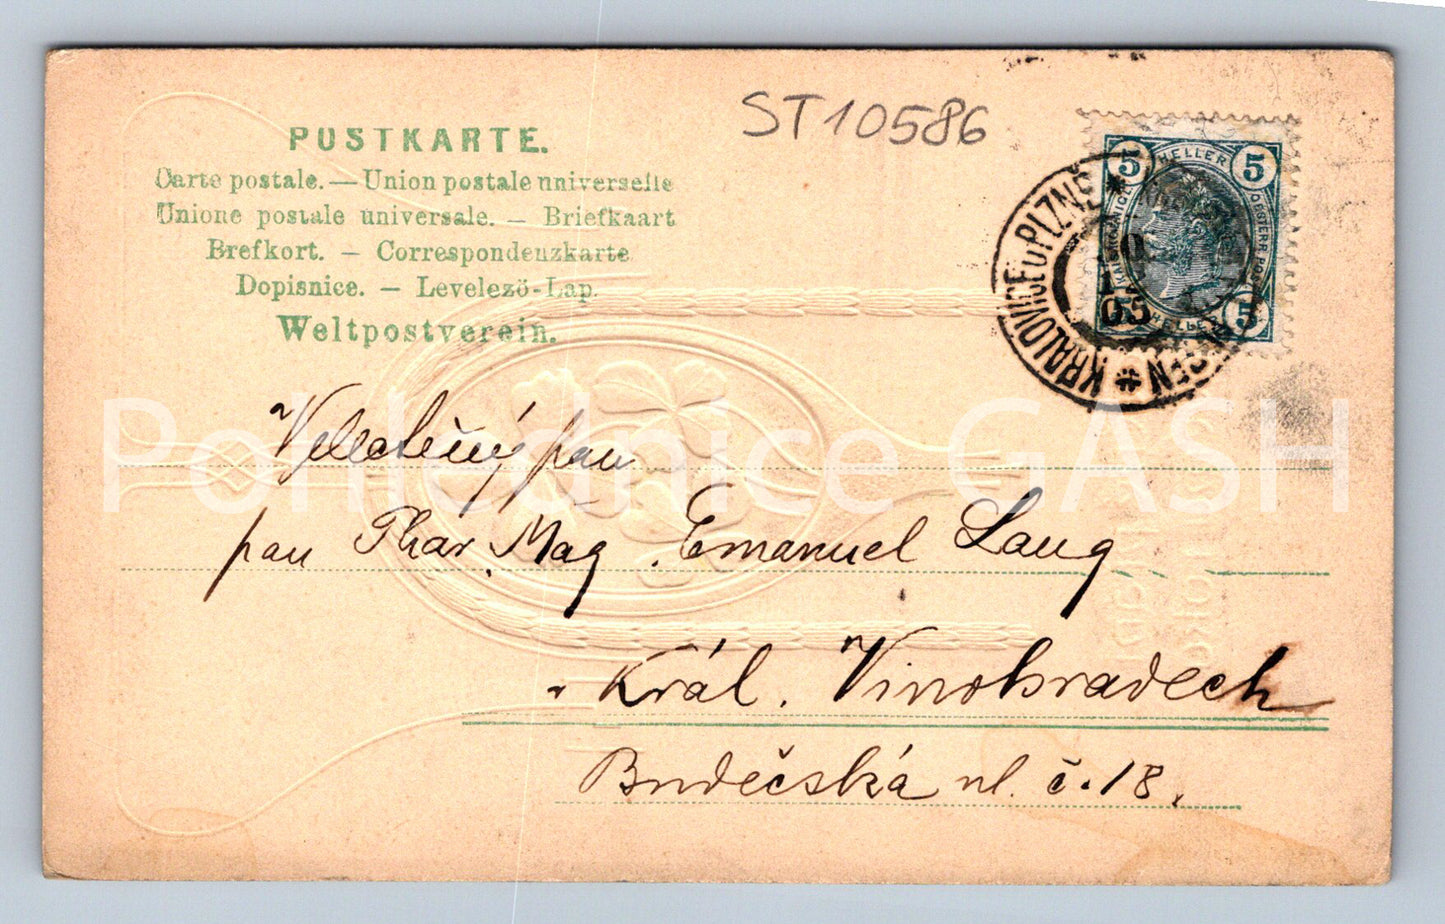 ST10586
POSTKARTE.
Carte postale. — Union postale universelle
Unione postale universale. — Briefkaart
Brefkort. — Correspondenzkarte
Dopisnice. — Levelező-Lap.
Weltpostverein.
5 HELLER 5
5 HELLER 5
KRALOVICE U PLZNĚ
05
Pohlednice GASH
Velectěný pan
pan Phar. Mag. Emanuel Lang
v Král. Vinohradech
Budečská ul. č. 18.